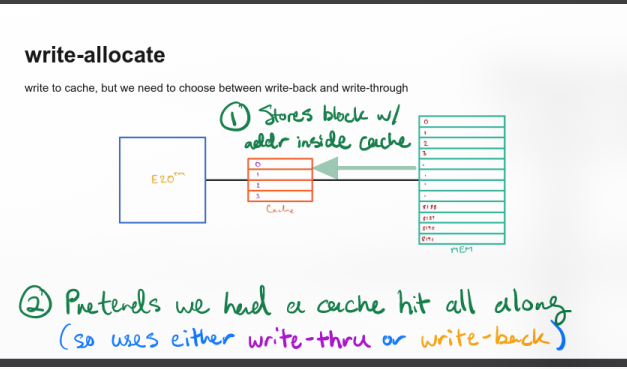 write-allocate
write to cache, but we need to choose between write-back and write-through
① Stores block w/
addr inside cache
E20™
0
1
2
3
Cache
0
1
2
3
.
.
.
.
8188
8189
8190
8191
MEM
② Pretends we had a cache hit all along
(so uses either write-thru or write-back)